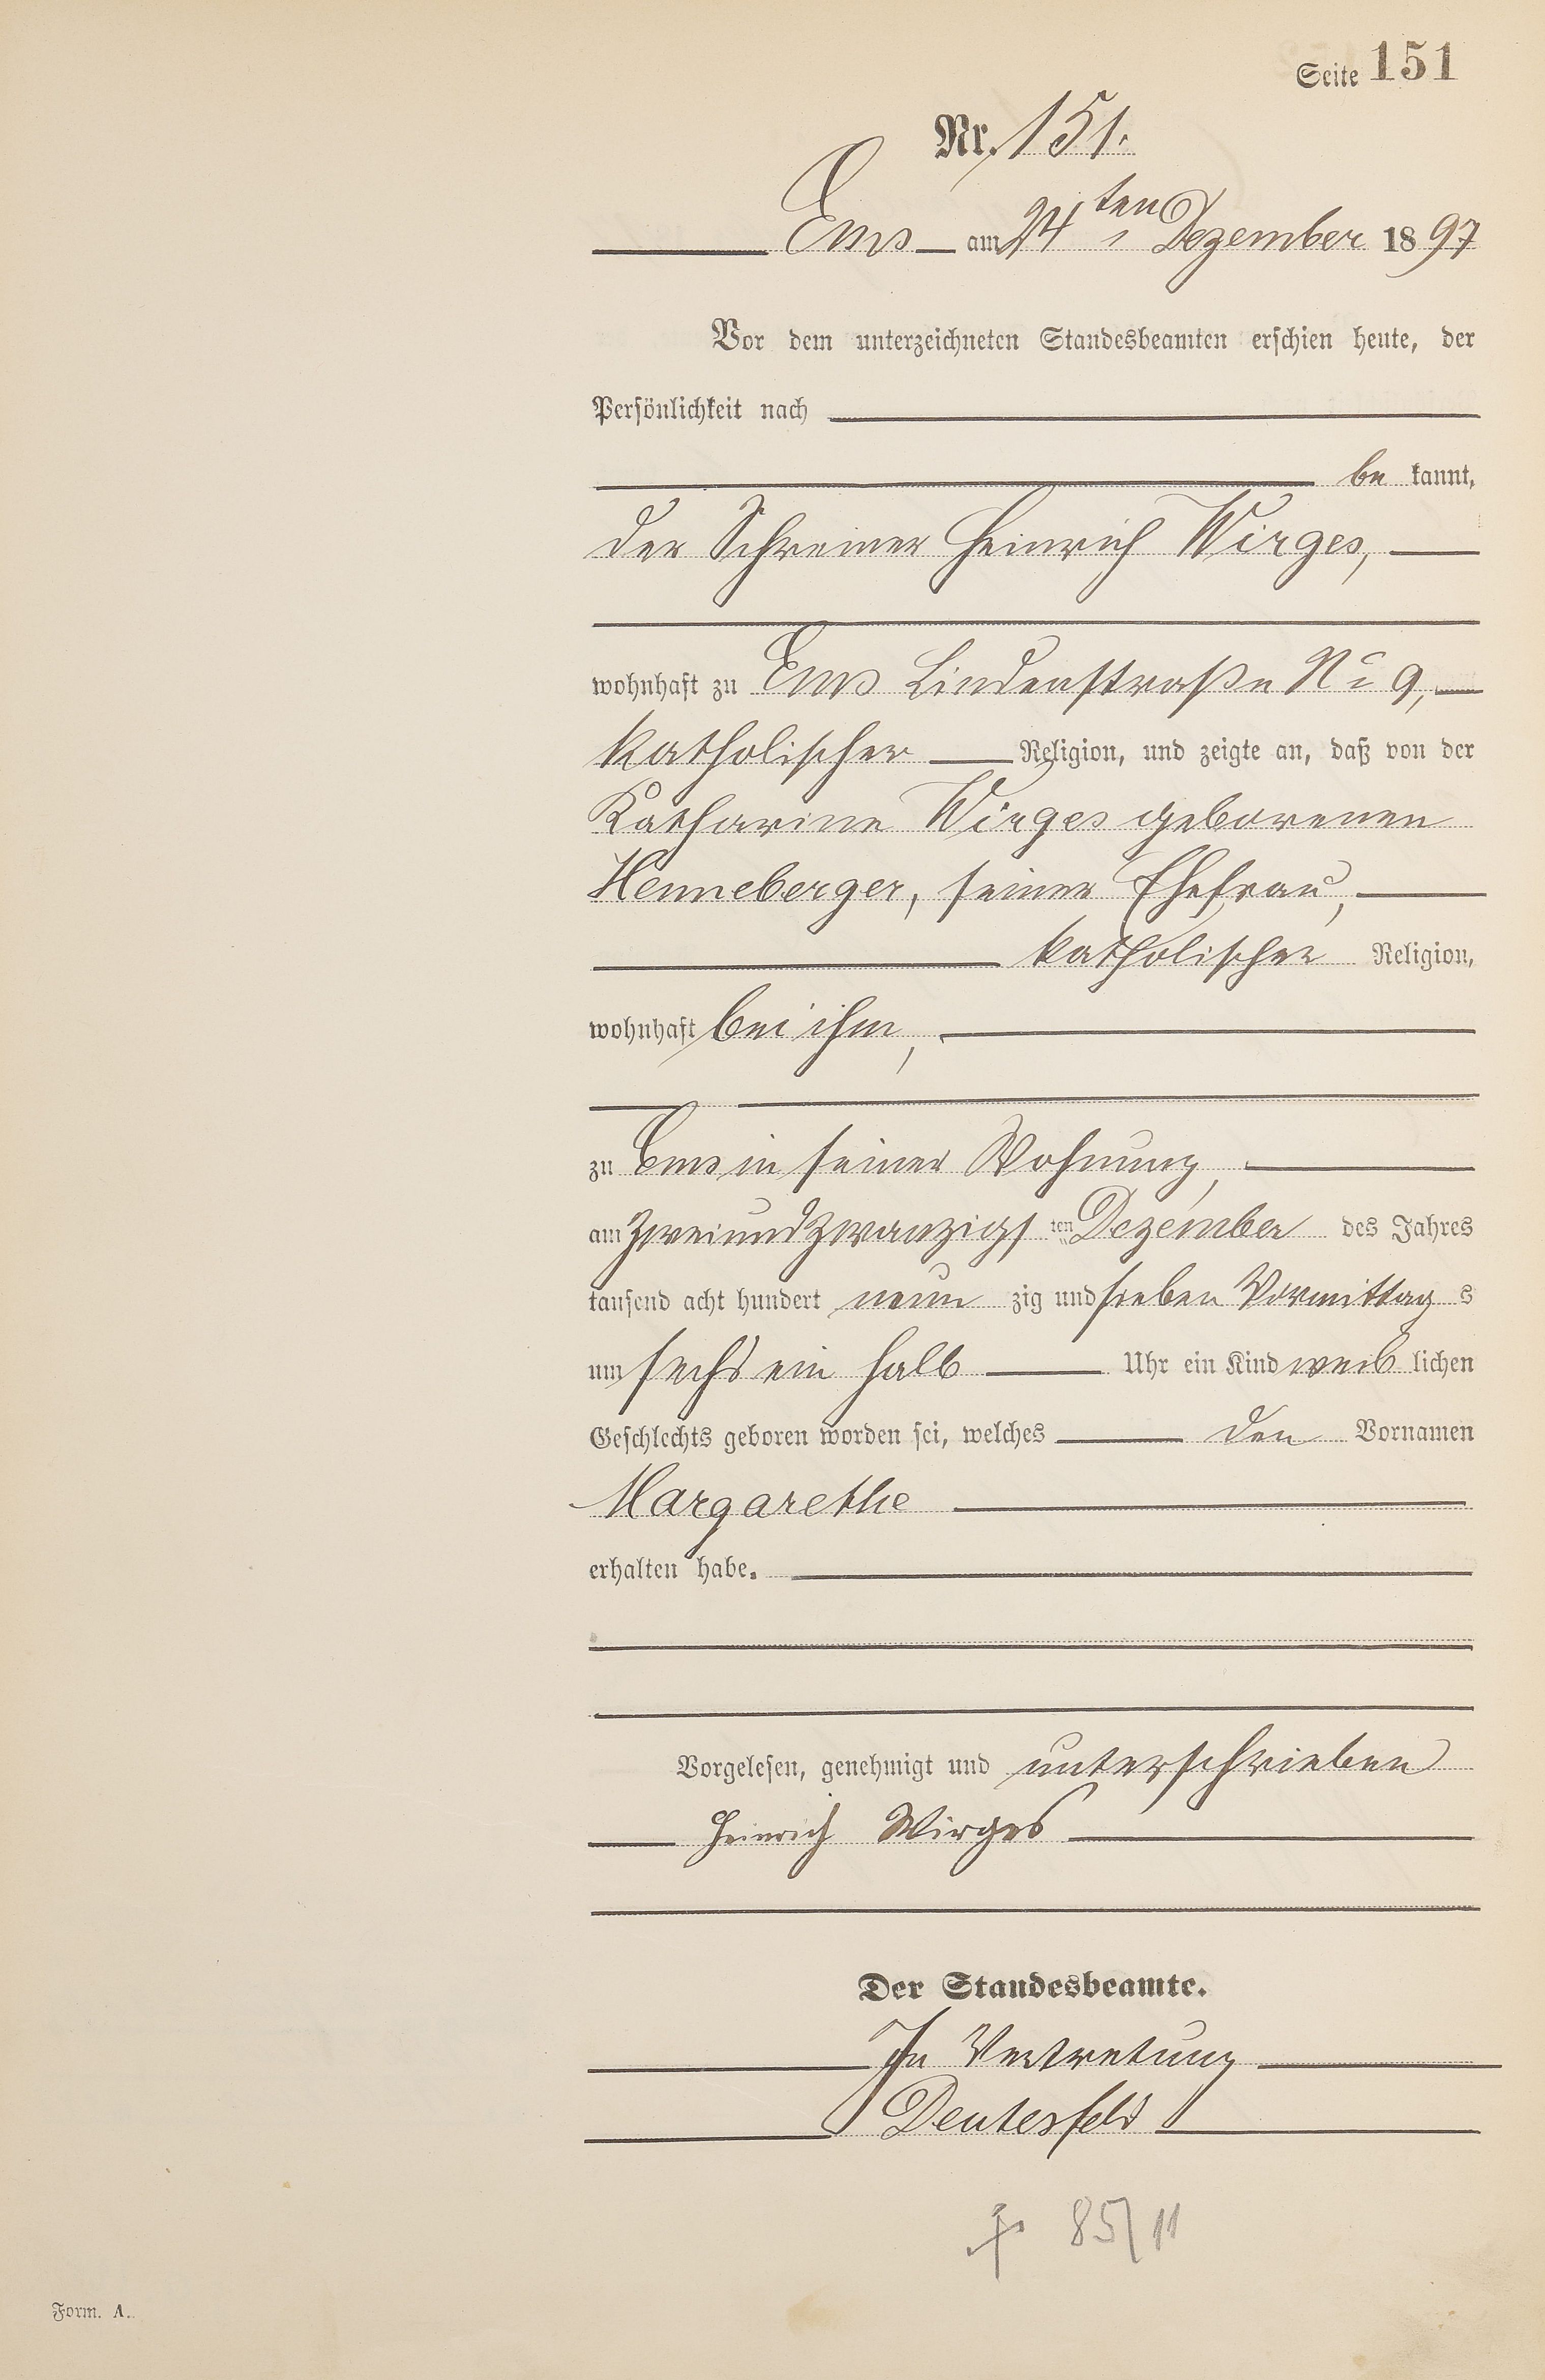 Seite 151
Nr. 151.
Ems am 24ten Dezember 1897
Vor dem unterzeichneten Standesbeamten erschien heute, der
Persönlichkeit nach
be kannt,
der Schreiner Heinrich Wirges,
wohnhaft zu Ems Lindenstraße No 9,
katholischer Religion, und zeigte an, daß von der
Katharine Wirges geborenen
Henneberger, seiner Ehefrau,
katholischer Religion,
wohnhaft bei ihm,
zu Ems in seiner Wohnung,
am zweiundzwanzigsten Dezember des Jahres
tausend acht hundert neun zig und sieben Vormittags
um sechs ein halb Uhr ein Kind weiblichen
Geschlechts geboren worden sei, welches den Vornamen
Margarethe
erhalten habe.
Vorgelesen, genehmigt und unterschrieben
Heinrich Wirges
Der Standesbeamte.
In Vertretung
Deutesfeld
85/11
Form. A.